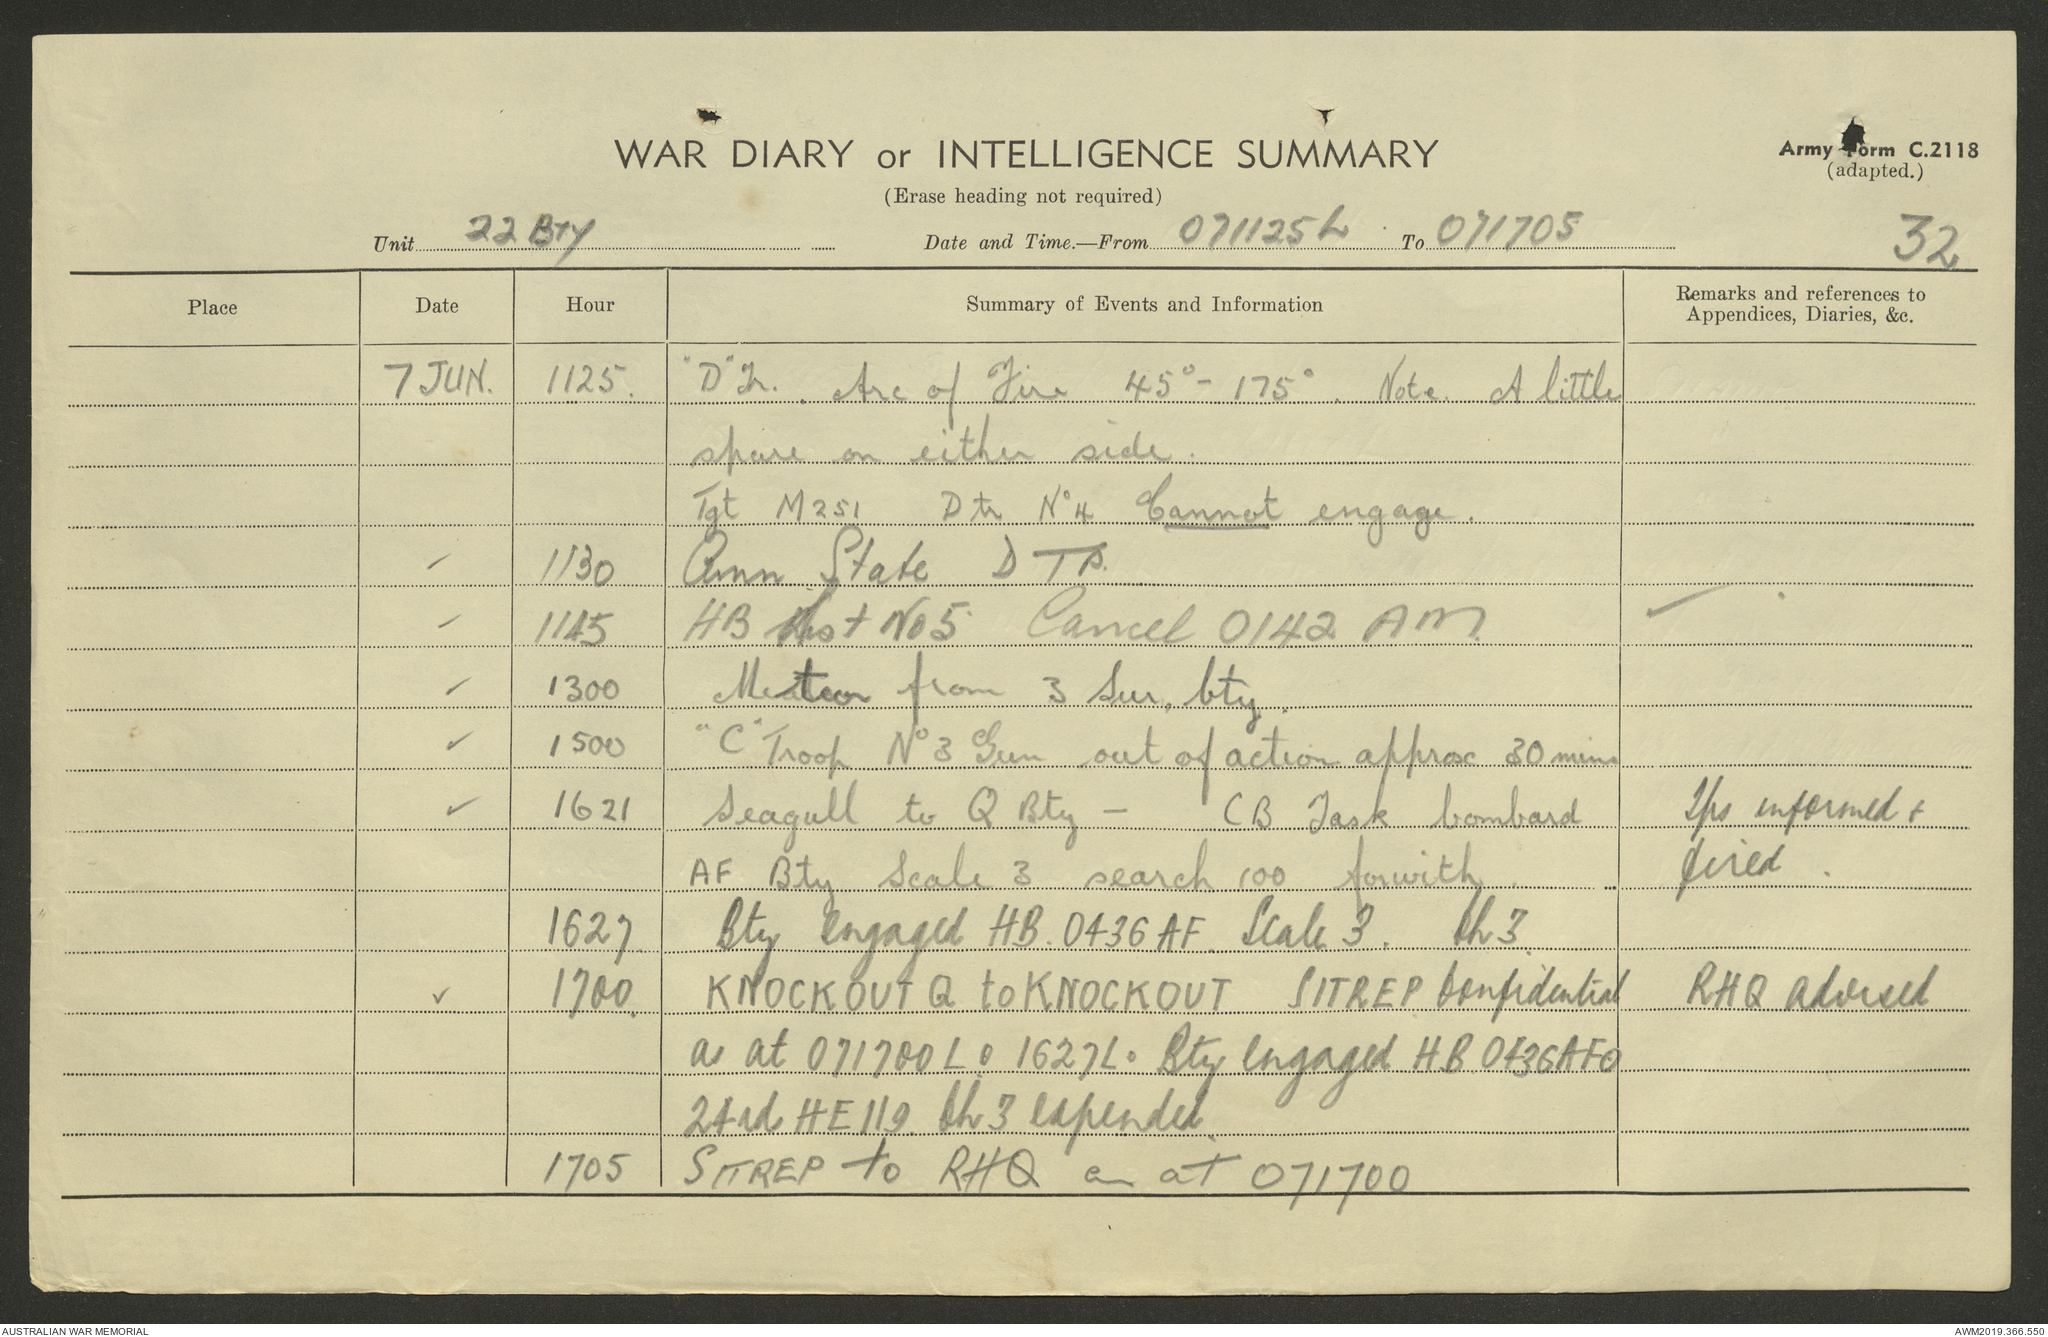 WAR DIARY or INTELLIGENCE SUMMARY
Army Form C.2118
(adapted.)
(Erase heading not required)
Unit 22 Bty Date and Time.—From 071125L To 071705
32
Place Date Hour Summary of Events and Information Remarks and references to Appendices, Diaries, &c.
7 JUN. 1125. "D" Tr. Arc of Fire 45° - 175°. Note. A little
spare on either side.
Tgt M251 D tr No 4 Cannot engage.
✓ 1130 Amn State D TP.
✓ 1145 HB No 5 Cancel 0142 AM ✓
✓ 1300 Meteor from 3 Sur. bty.
✓ 1500 "C" Troop No 3 Gun out of action approx 30 mins
✓ 1621 Seagull to Q Bty - CB Task bombard Tps informed +
AF Bty Scale 3 search 100 forwith. fired.
1627 Bty engaged HB. 0436 AF. Scale 3. Ch 3.
✓ 1700. KNOCKOUT Q to KNOCKOUT SITREP Confidential RHQ advised
as at 071700L. 1627L. Bty engaged HB 0436AF.
24 rds HE 119 Ch 3 expended.
1705 SITREP to RHQ as at 071700
AUSTRALIAN WAR MEMORIAL AWM2019.366.550